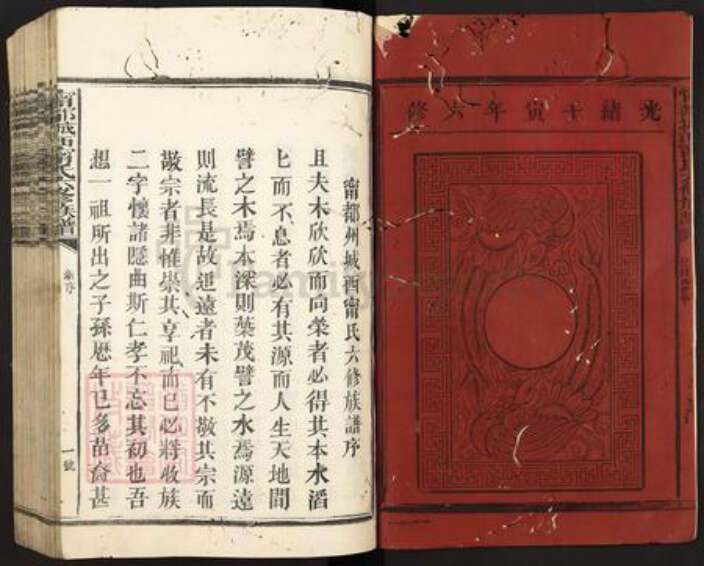 光緒壬寅年六修
甯都州城西甯氏六修族譜序
且夫木欣欣而向榮者必得其本水滔
匕而不息者必有其源而人生天地間
譬之木焉本深則葉茂譬之水焉源遠
則流長是故追遠者未有不敬其宗而
敬宗者非惟崇其享祀而已必將收族
二字懷諸隱曲斯仁孝不忘其初也吾
想一祖所出之子孫歷年已多苗裔甚
甯都城西甯氏六修族譜
新序
一號